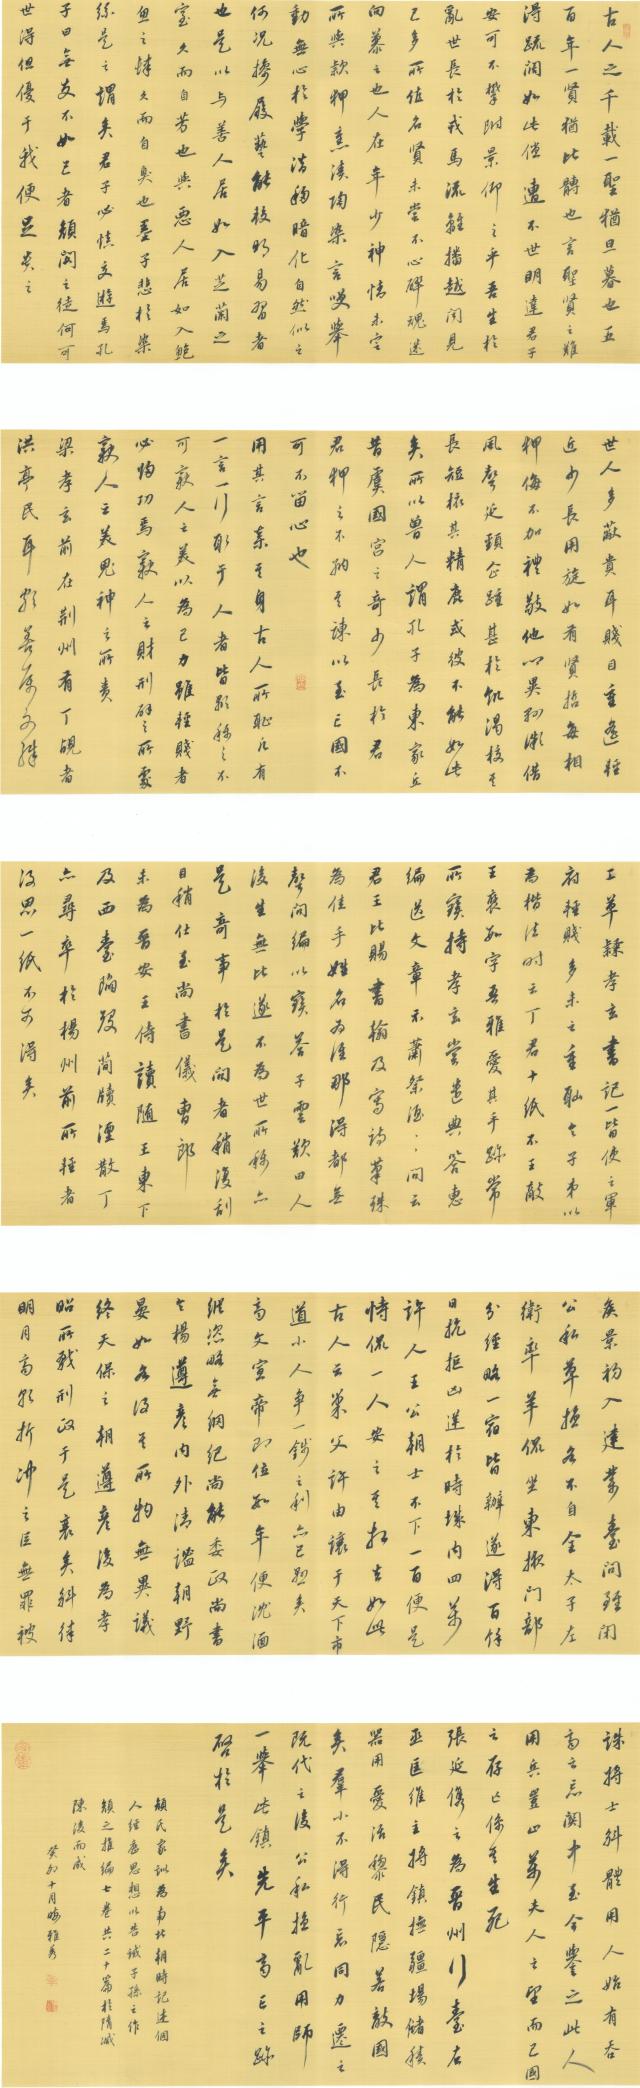 古人云千載一聖猶旦暮也五
百年一賢猶比髆也言聖賢之難
得疏闊如此儻遭不世明達君子
安可不攀附景仰之乎吾生於
亂世長於戎馬流離播越聞見
已多所值名賢未嘗不心醉魂迷
向慕之也人在年少神情未定
所與款狎熏漬陶染言笑舉
動無心於學潛移暗化自然似之
何況操履藝能較明易習者
也是以与善人居如入芝蘭之
室久而自芳也與惡人居如入鮑
魚之肆久而自臭也墨子悲於染
絲是之謂矣君子必慎交遊焉孔
子曰無友不如己者顏閔之徒何可
世得但優于我便足貴之
世人多蔽貴耳賤目重遙輕
近少長周旋如有賢哲每相
狎侮不加禮敬他鄉異縣微借
風聲延頸企踵甚於飢渴校其
長短核其精麁或彼不能如此
矣所以魯人謂孔子為東家丘
昔虞國宮之奇少長於君
君狎之不納其諫以至亡國不
可不留心也
用其言棄其身古人所恥凡有
一言一行取于人者皆顯稱之不
可竊人之美以為己力雖輕賤者
必歸功焉竊人之財刑辟之所處
竊人之美鬼神之所責
梁孝元前在荆州有丁覘者
洪亭民耳頗善属文殊
工草隸孝元書記一皆使之軍
府輕賤多未之重恥令子弟以
為楷法時云丁君十紙不王敵
王褒數字吾雅愛其手跡常
所寶持孝元嘗遣典籤惠
編送文章示蕭祭酒〻問云
君王比賜書翰及寫詩筆殊
為佳手姓名為誰那得都無
聲問編以實答子雲歎曰人
後生無比遂不為世所稱亦
是奇事於是聞者稍復刮
目稍仕至尚書儀曹郎
末為晉安王侍讀隨王東下
及西臺陷歿簡牘湮散丁
亦尋卒於楊州前所輕者
後思一紙不可得矣
侯景初入建業臺門雖閉
公私草擾各不自全太子左
衛率羊侃坐東掖門部
分經略一宿皆辦遂得百餘
日抗拒凶逆於時城内四萬
許人王公朝士不下一百便是
恃侃一人安之其相去如此
古人云巢父許由讓于天下市
道小人爭一錢之利亦已懸矣
齊文宣帝即位數年便沈湎
縱恣略無綱紀尚能委政尚書
令楊遵彥内外清謐朝野
晏如各得其所物無異議
終天保之朝遵彥後為孝
昭所戮刑政于是衰矣斛律
明月齊朝折沖之臣無罪被
誅將士斛體用人始有吞
齊之志關中至今譽之此人
用兵豈止萬夫人之望而已國
之存亡係其生死
張延儁之為晉州行臺左
丞匡維主將鎮撫疆場儲積
器用愛活黎民隱若敵國
矣羣小不得行志同力遷之
既代之後公私擾亂周師
一舉此鎮先平齊亡之跡
啓於是矣
顏氏家訓為南北朝時記述個
人經歷思想以告誡子孫之作
顏之推編七卷共二十篇於隋滅
陳後而成
癸卯十月